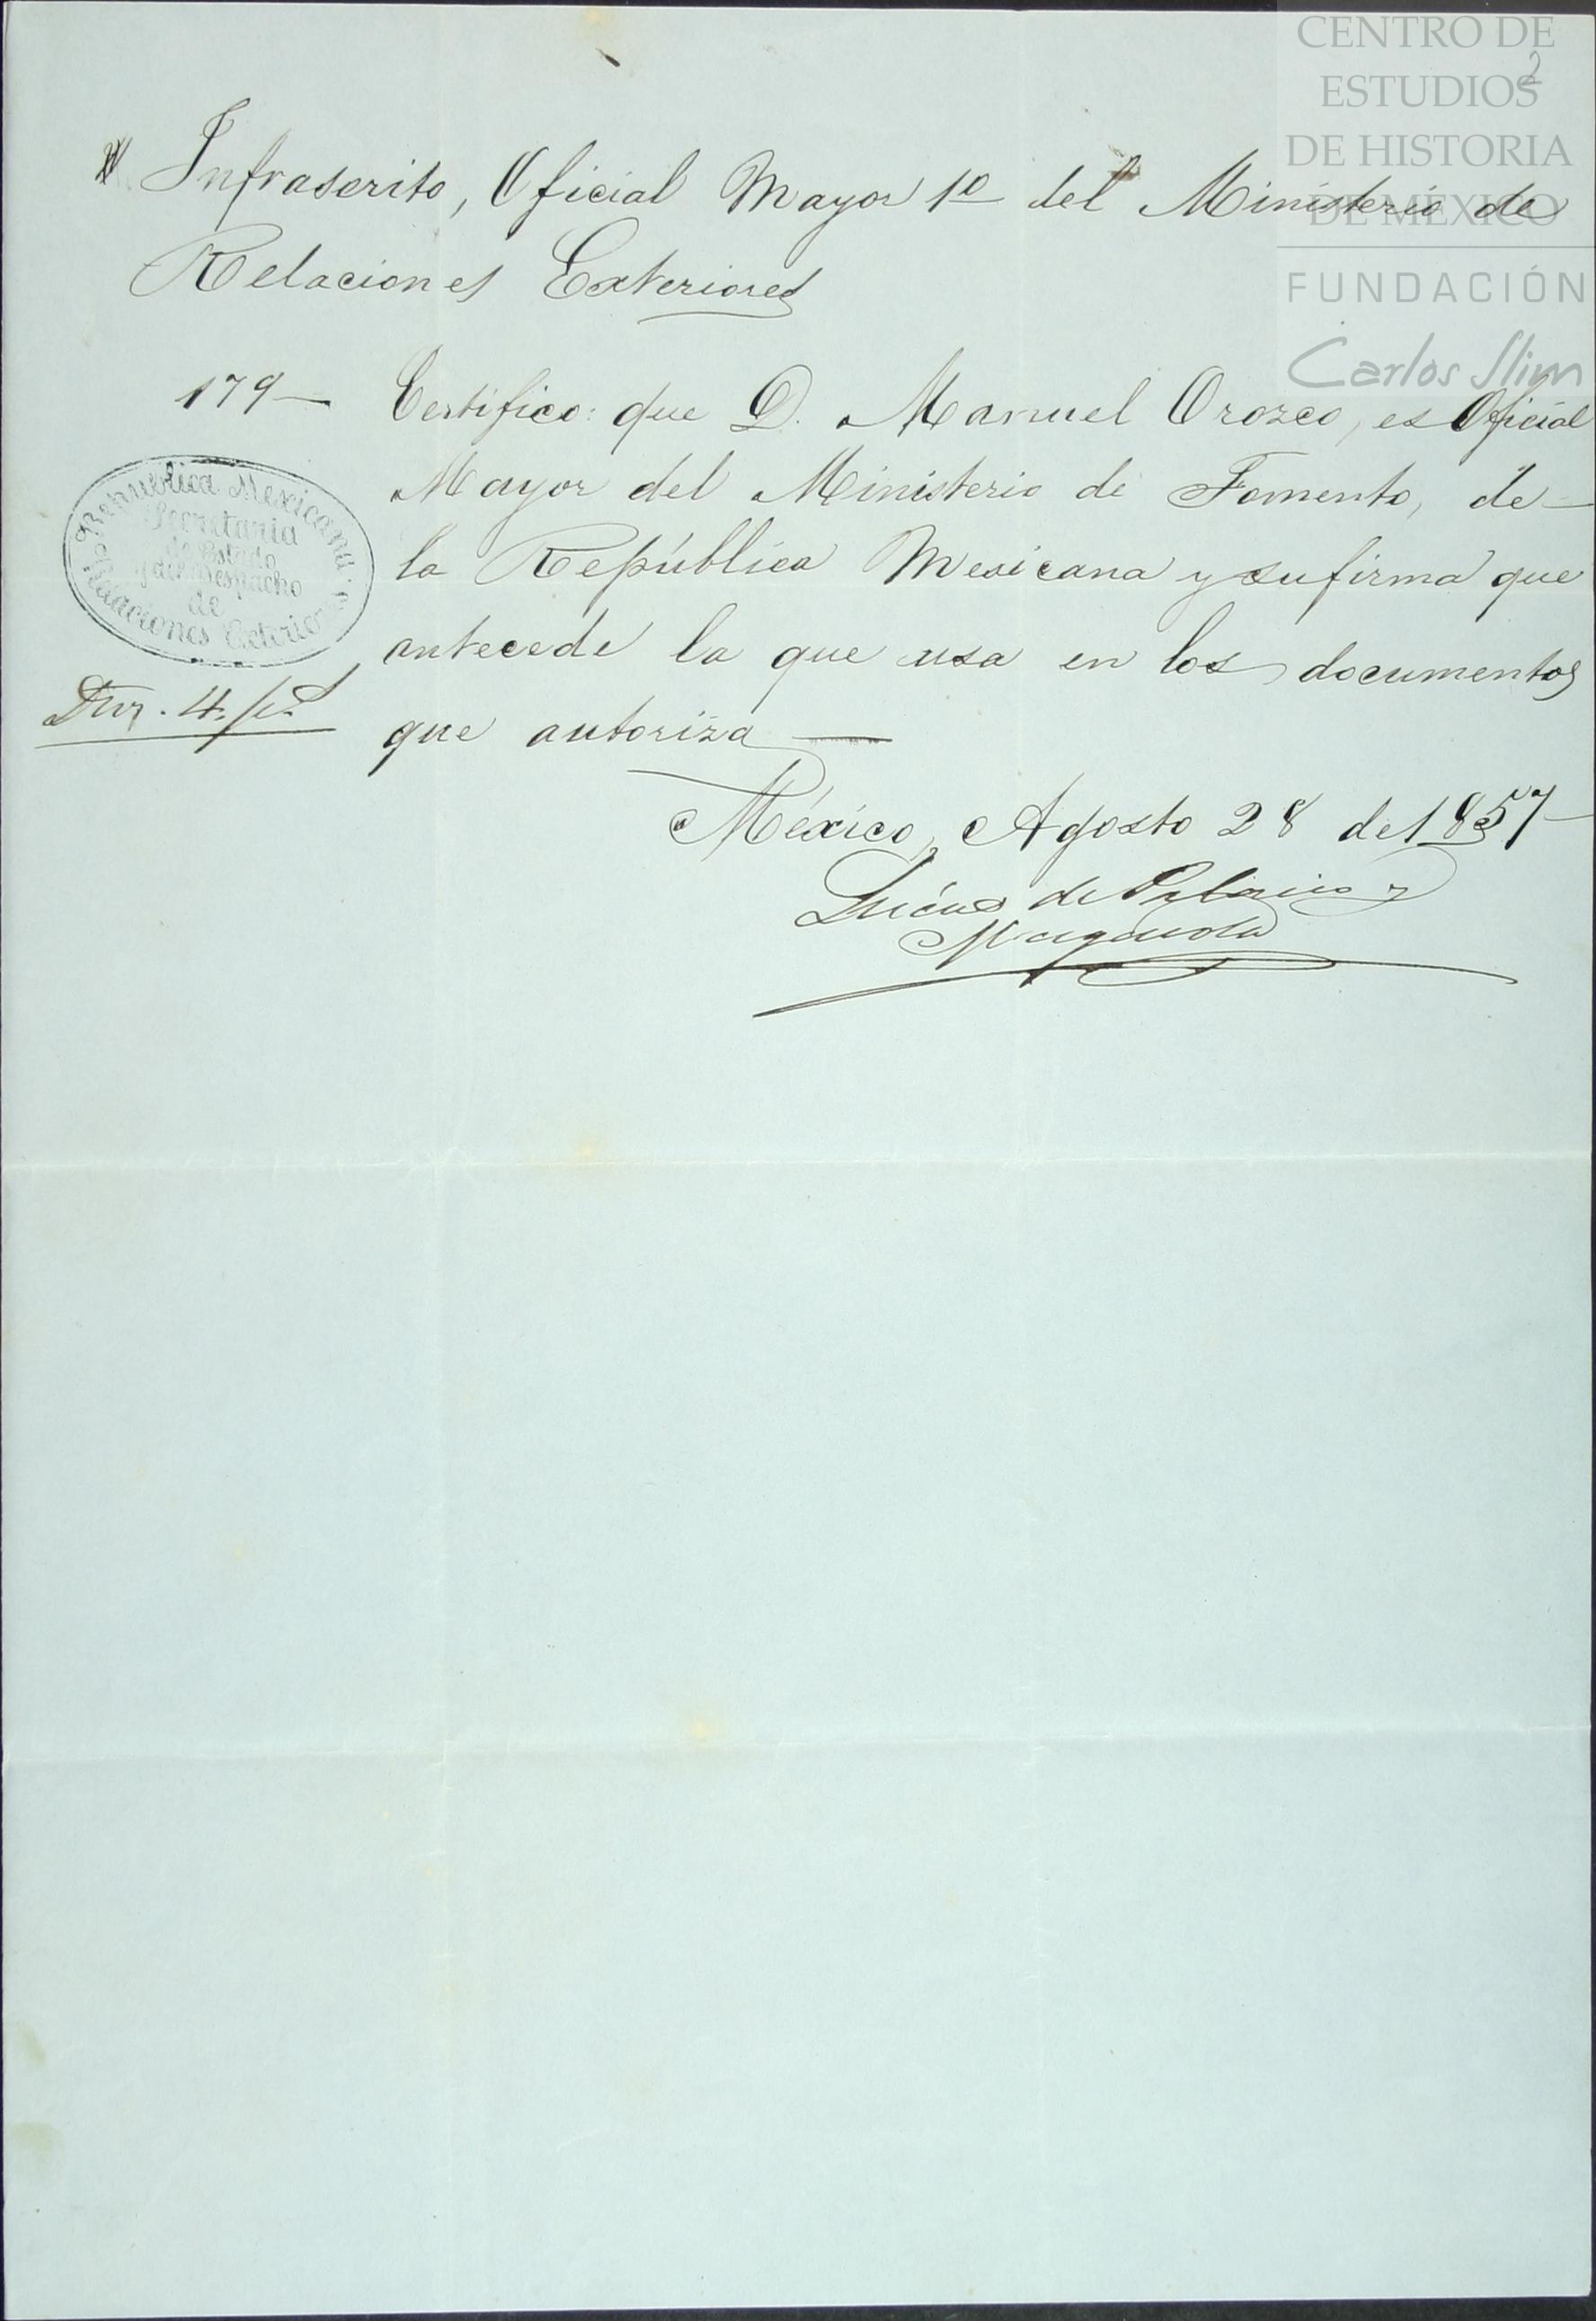 CENTRO DE
ESTUDIOS
DE HISTORIA
DE MÉXICO
FUNDACIÓN
Carlos Slim
2
Infrascrito, Oficial Mayor 1º del Ministerio de
Relaciones Exteriores
179
Certifico: que D. Manuel Orozco, es Oficial
Mayor del Ministerio de Fomento, de
la República Mexicana y su firma que
antecede la que usa en los documentos
que autoriza
República Mexicana
Secretaria
de Estado
y del Despacho
de
Relaciones Exterior
México, Agosto 28 de 1857
Lúcas de Palacio y
Magarola